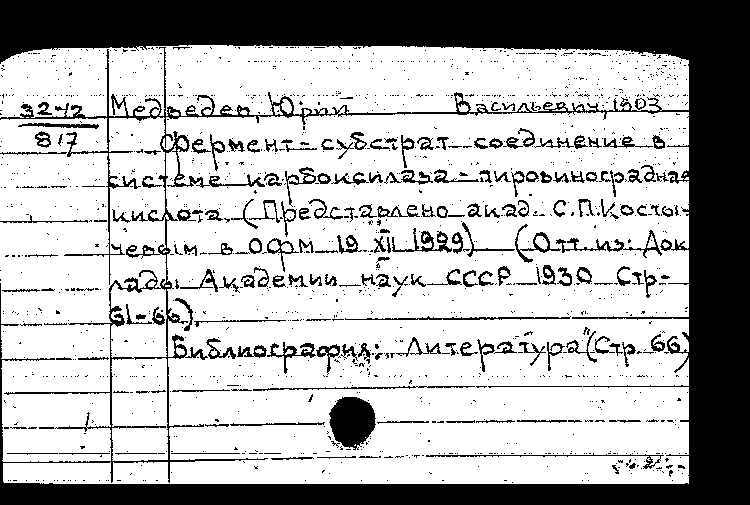 32-12 Медведев, Юрий Васильевич, 1903
817 Фермент-субстрат соединение в
системе карбоксилаза - пировиноградная
кислота. (Представлено акад. С.П.Косты-
чевым в ОФМ 19 XII 1929) (Отт. из: Док
лады Академии наук СССР 1930 Стр-
61-66).
Библиография: "Литература" (Стр. 66)